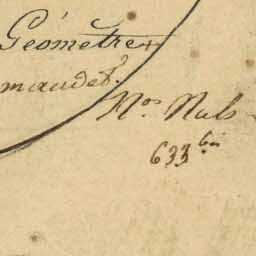 Géomètre
mandet.
Nos. Nuls
633 bis